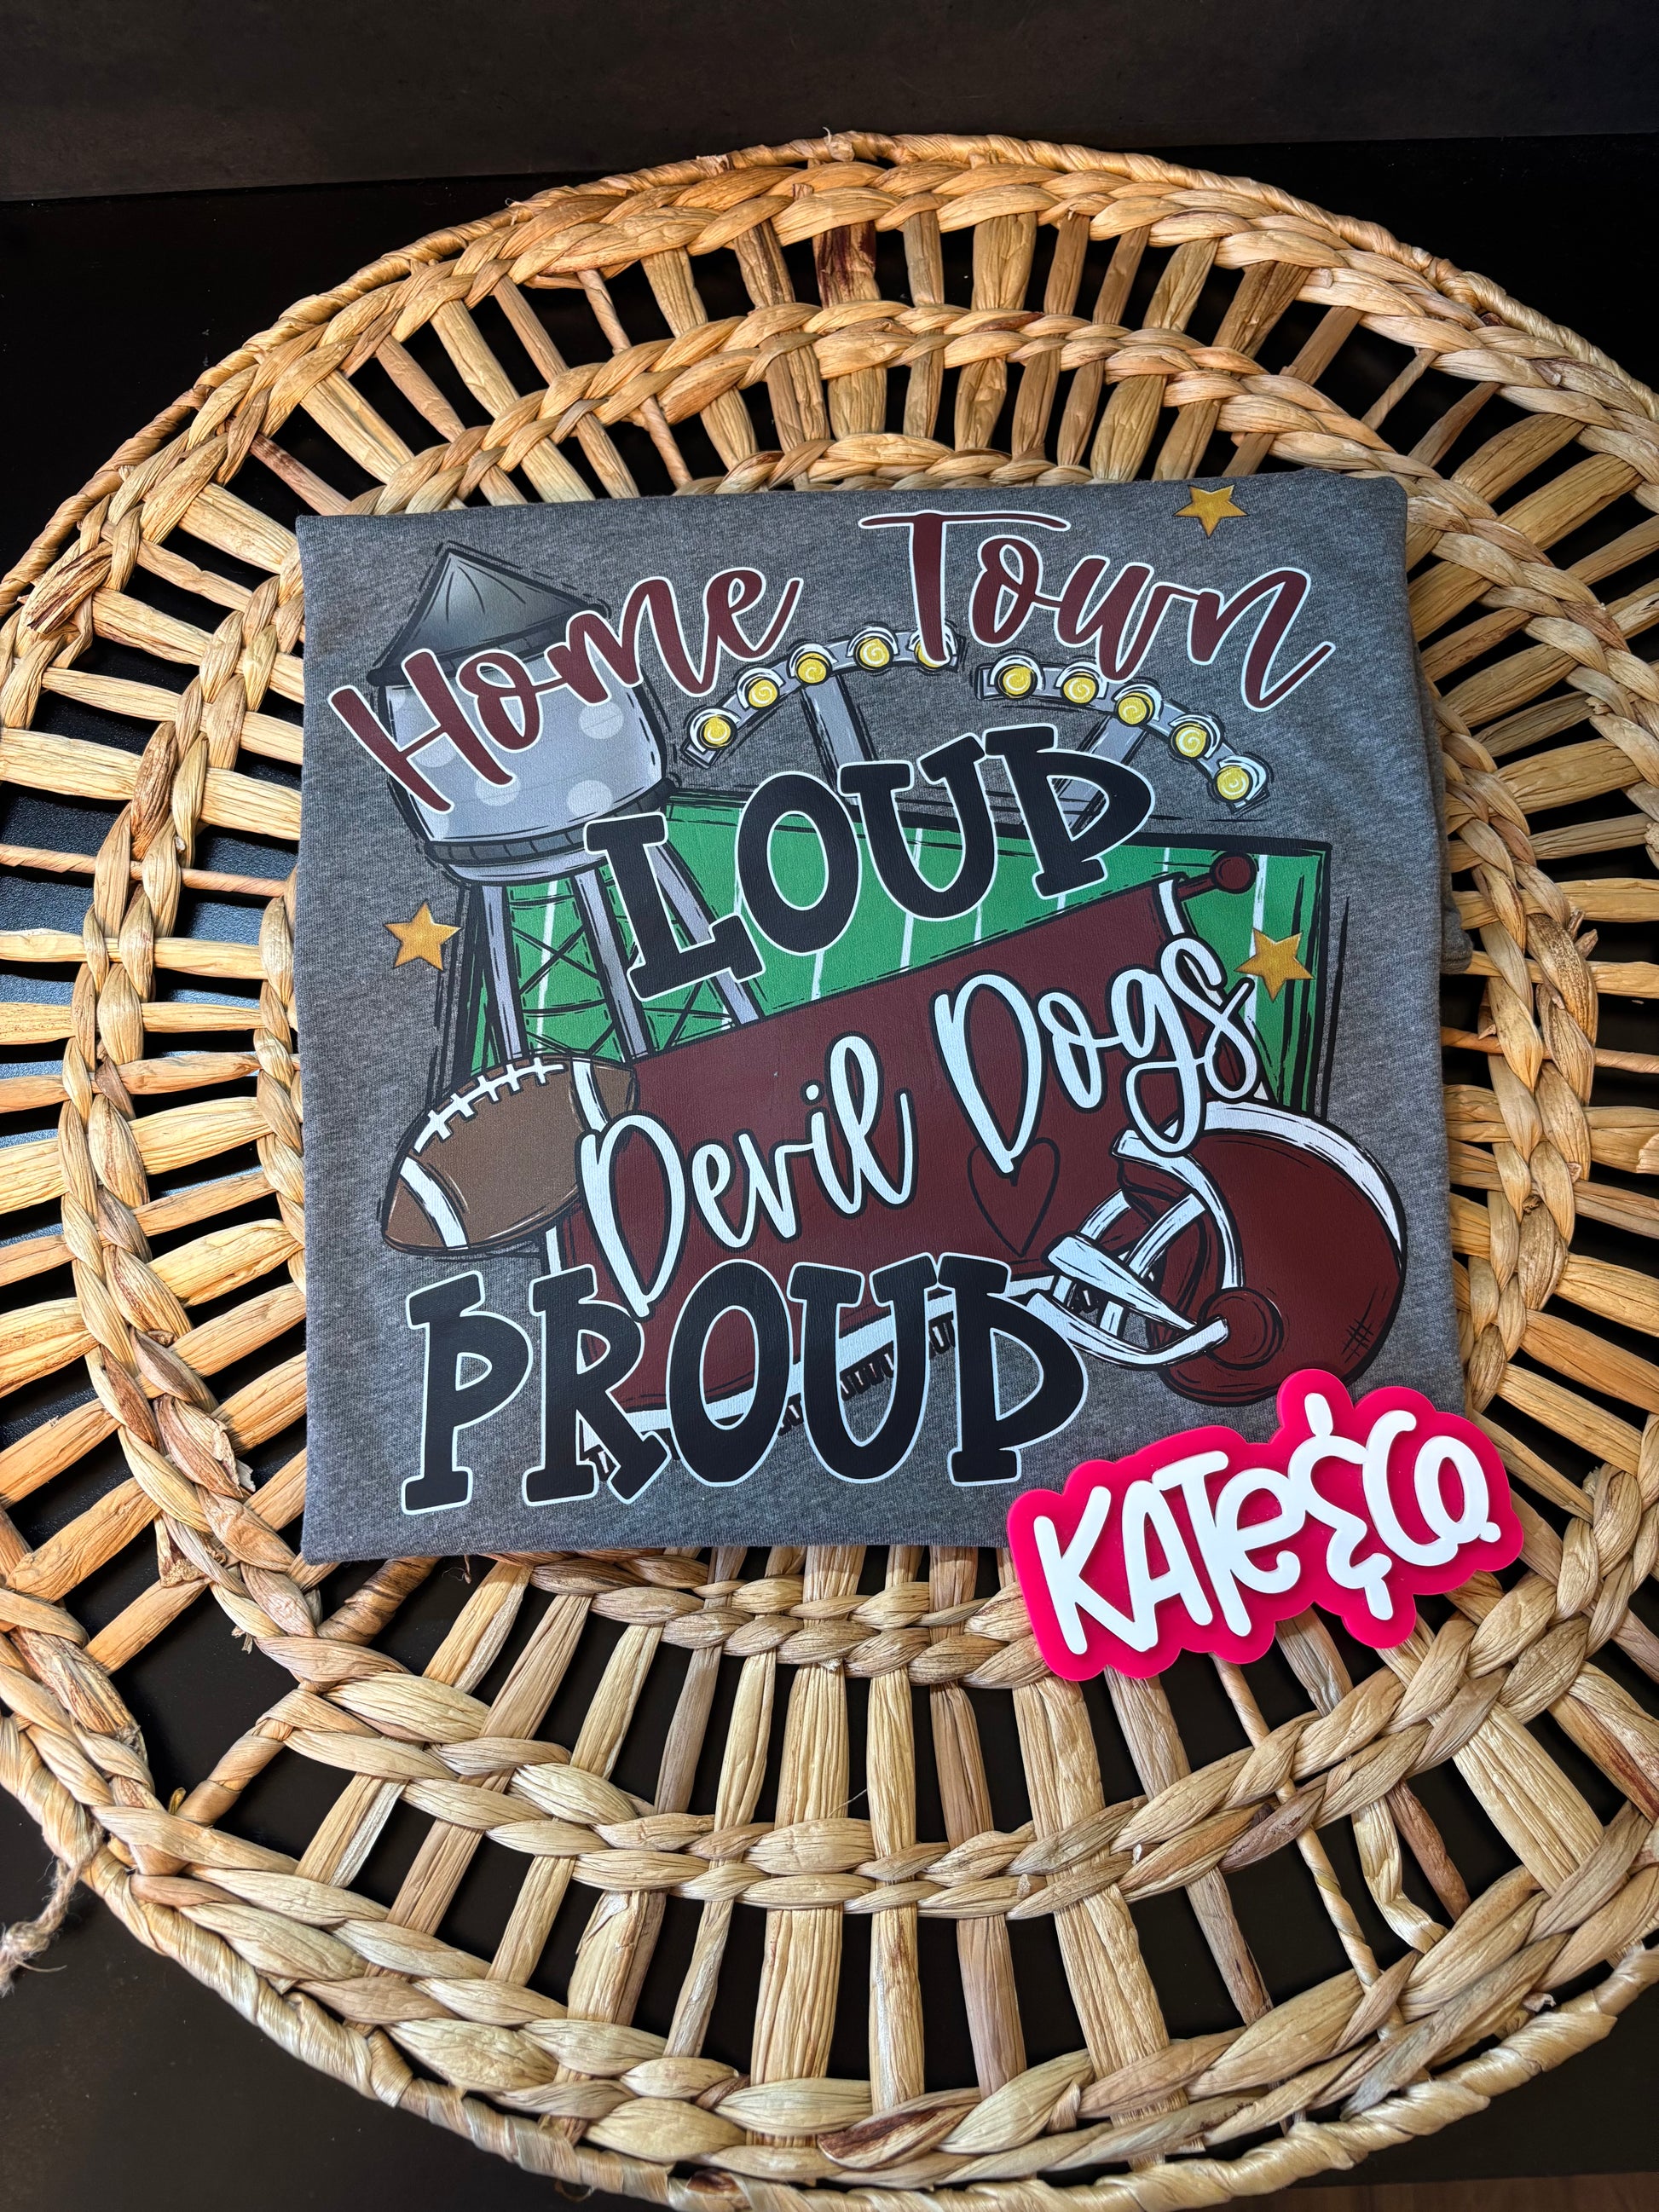 Home Town
LOUD
Devil Dogs
PROUD
KATE&CO.